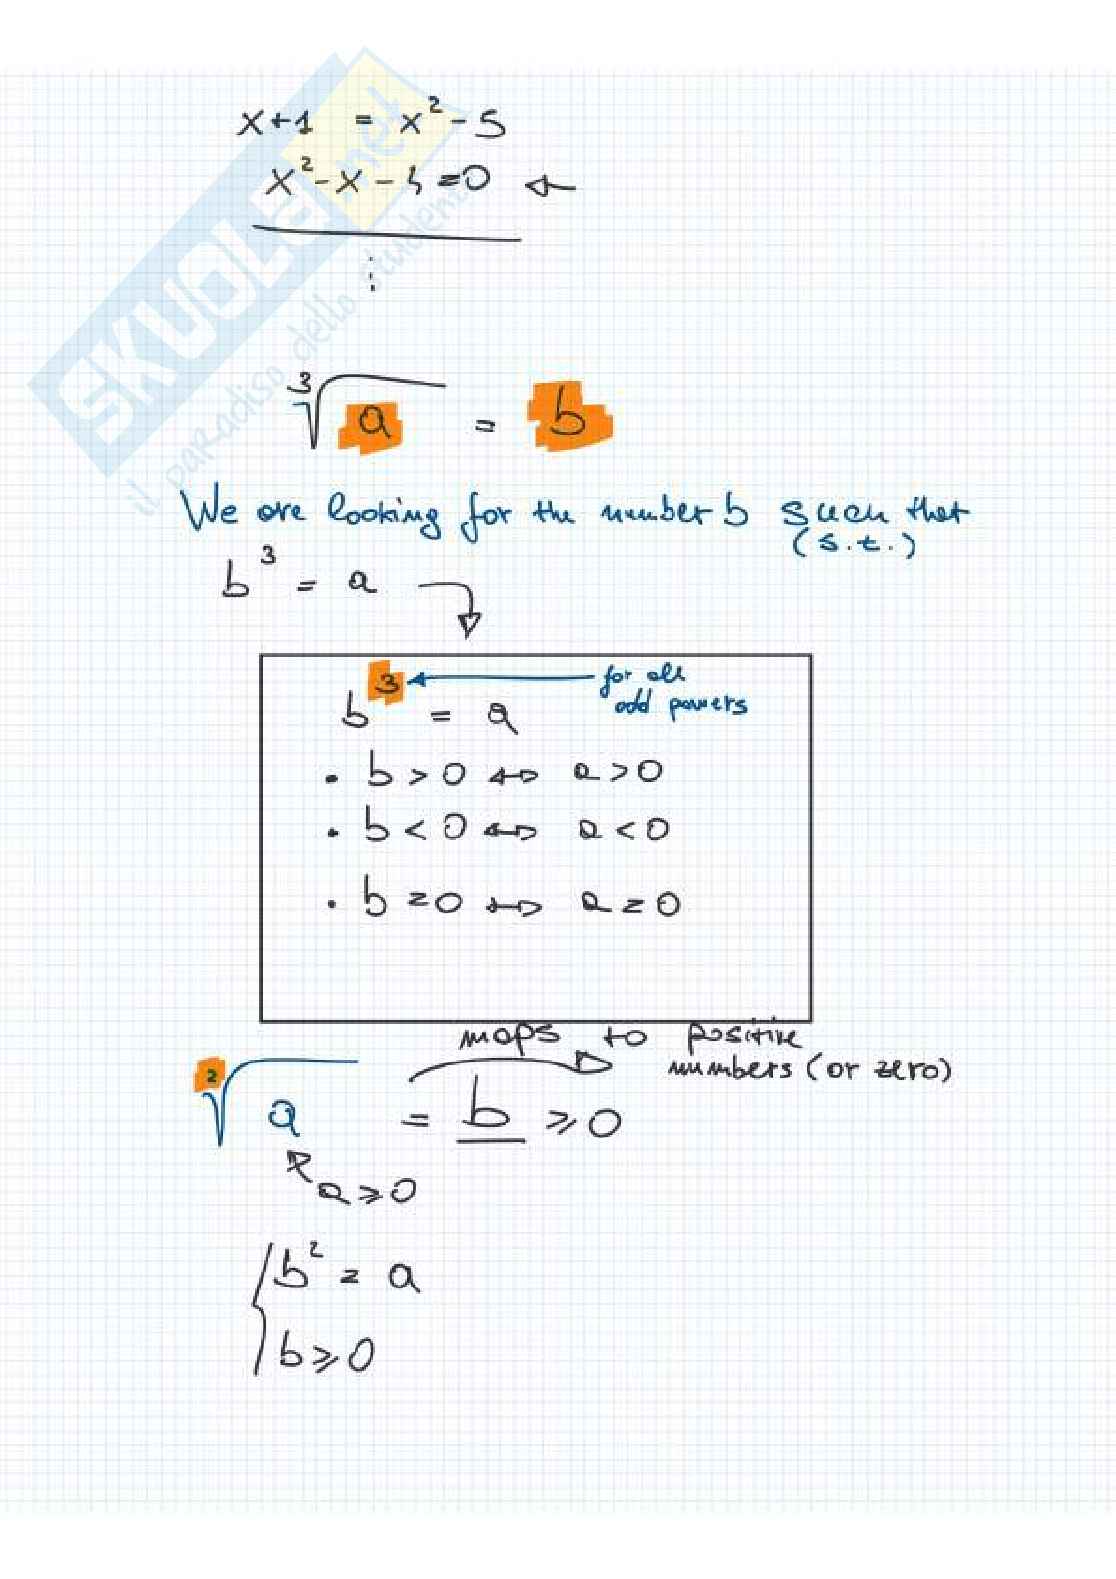 x+1 = x² - 5
x² - x - 5 = 0 ←
⋮
∛a = b
We are looking for the number b such that
(s.t.)
b³ = a
b³ = a ← for all
odd powers
• b > 0 ↔ a > 0
• b < 0 ↔ a < 0
• b = 0 ↔ a = 0
maps to positive
numbers (or zero)
²√a = b ⩾ 0
a ⩾ 0
{ b² = a
b ⩾ 0
SKUOLA.net
il paradiso dello studente